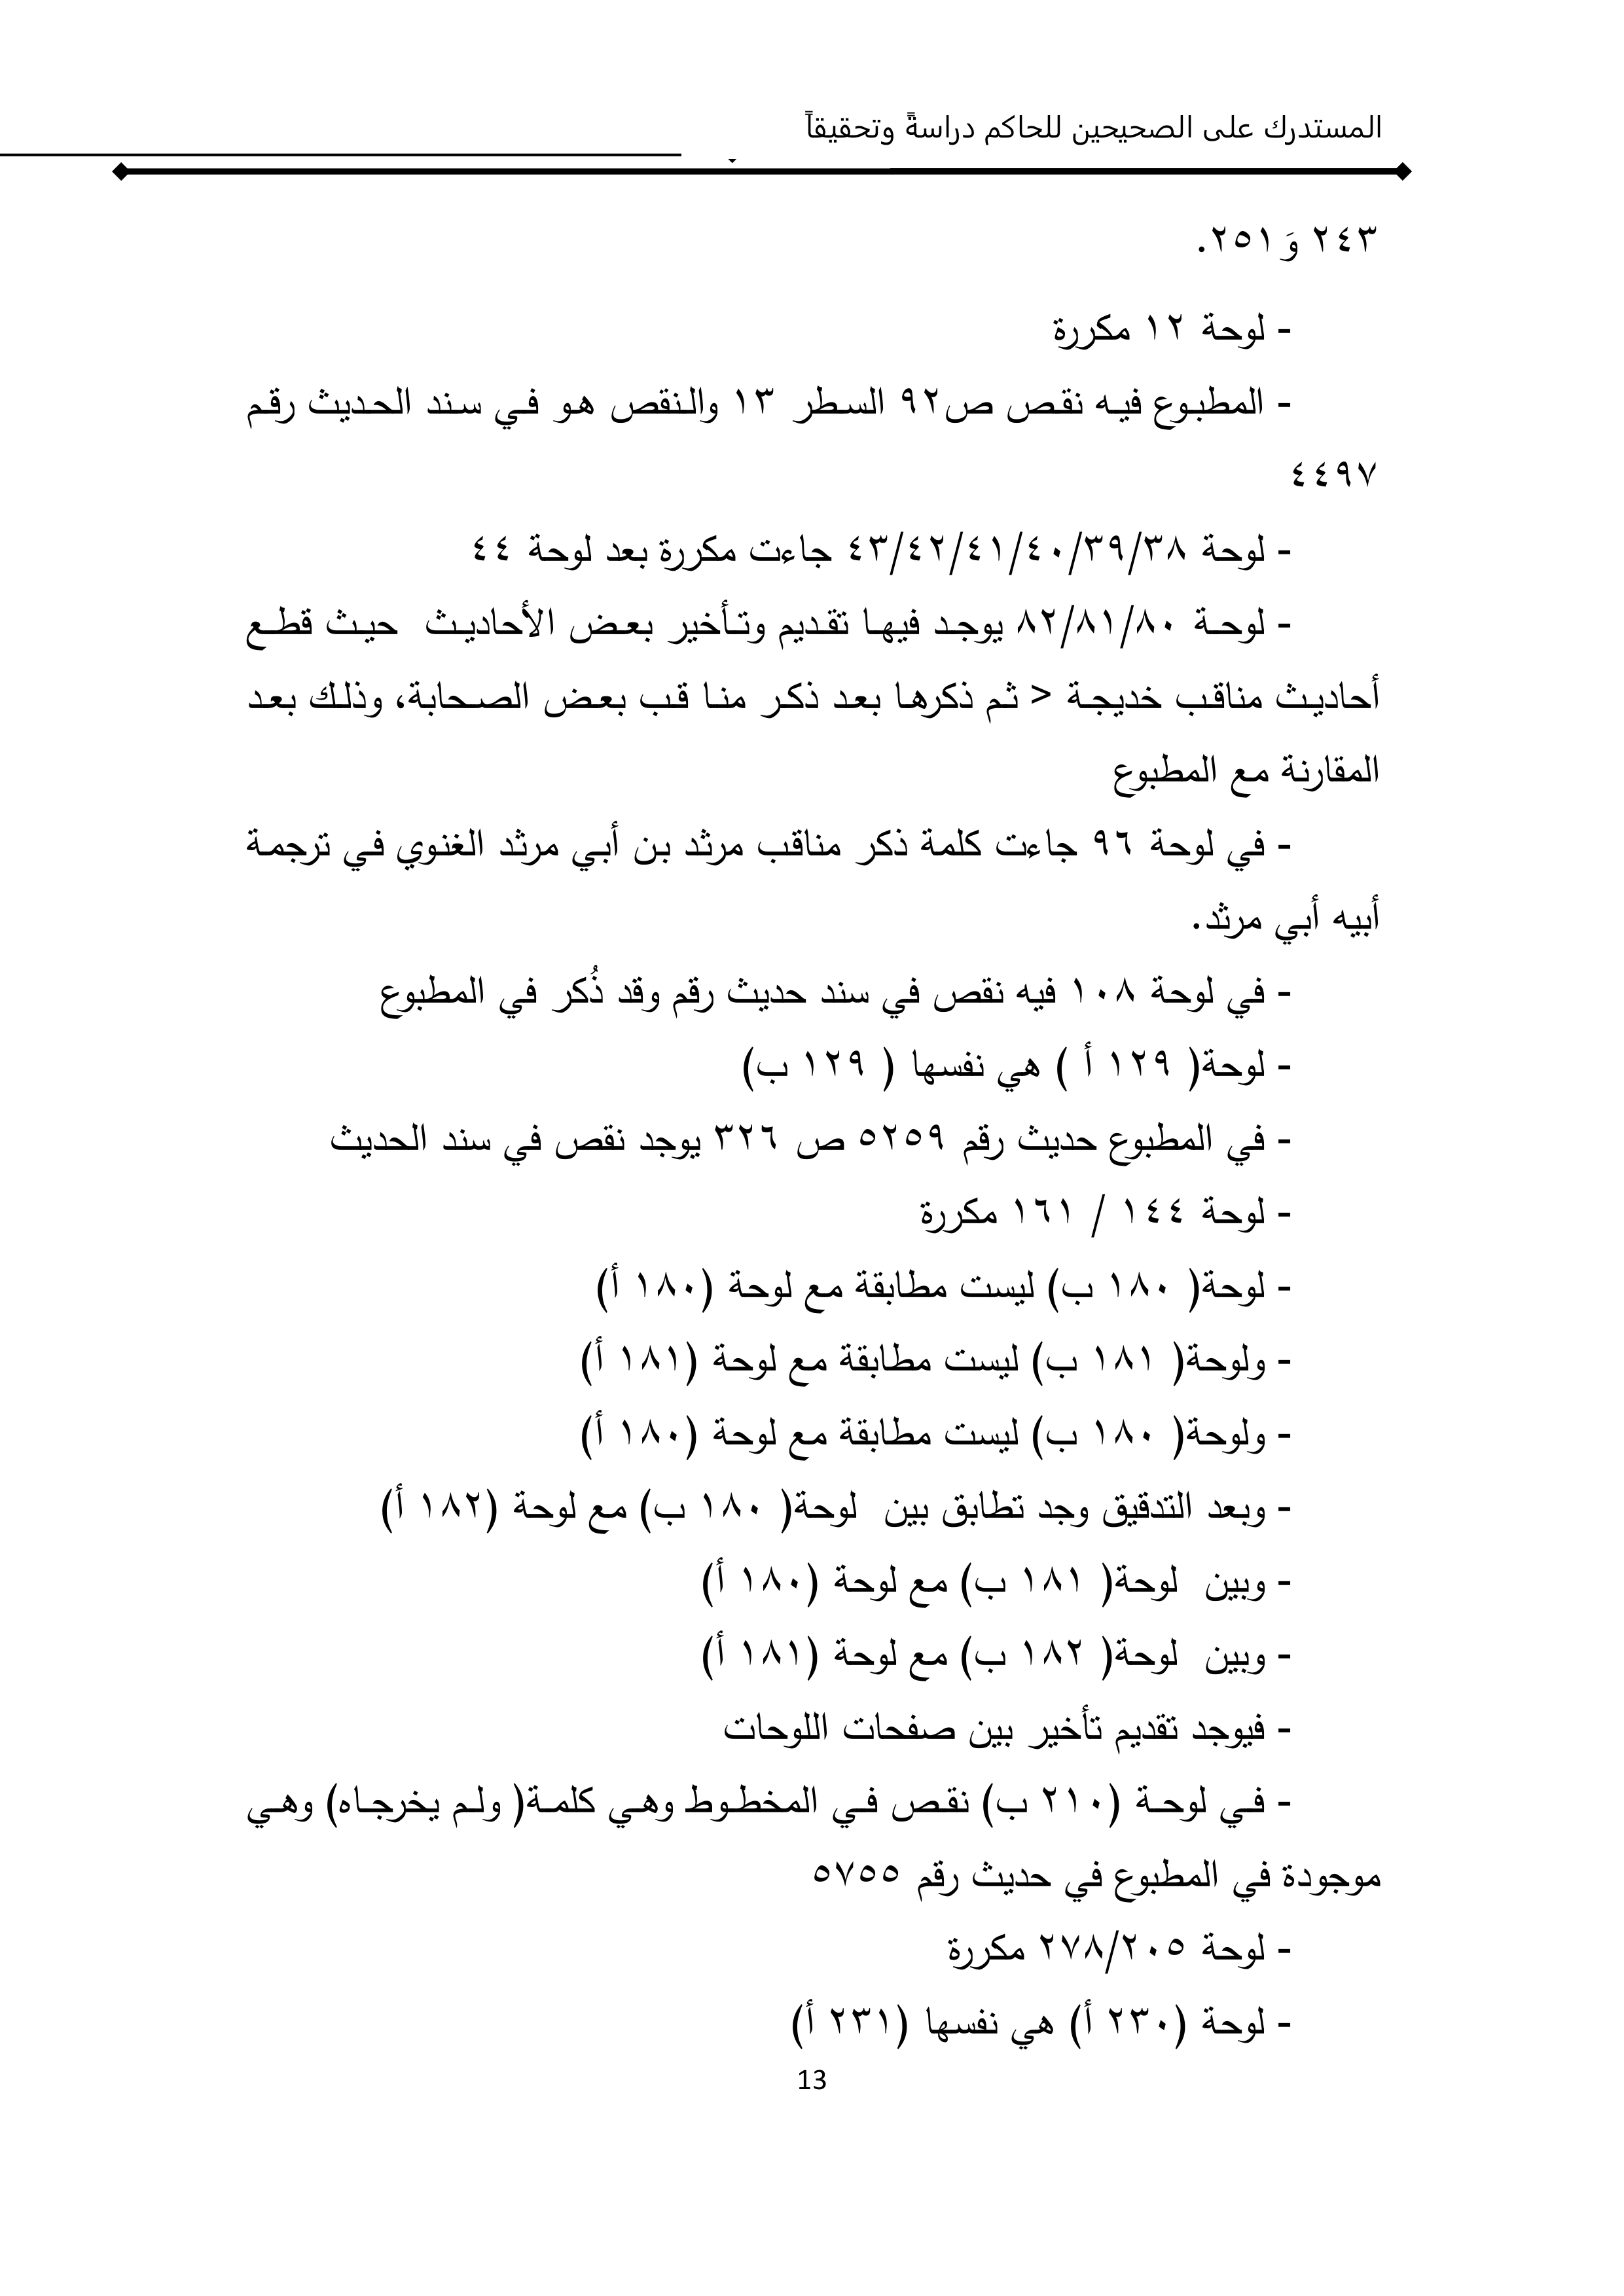 المستدرك على الصحيحين للحاكم دراسةً وتحقيقاً
٢٤٣ وَ٢٥١.
- لوحة ١٢ مكررة
- المطبوع فيه نقص ص٩٢ السطر ١٣ والنقص هو في سند الحديث رقم
٤٤٩٧
- لوحة ٣٨/٣٩/٤٠/٤١/٤٢/٤٣ جاءت مكررة بعد لوحة ٤٤
- لوحة ٨٠/٨١/٨٢ يوجد فيها تقديم وتأخير بعض الأحاديث حيث قطع
أحاديث مناقب خديجة > ثم ذكرها بعد ذكر منا قب بعض الصحابة، وذلك بعد
المقارنة مع المطبوع
- في لوحة ٩٦ جاءت كلمة ذكر مناقب مرثد بن أبي مرثد الغنوي في ترجمة
أبيه أبي مرثد.
- في لوحة ١٠٨ فيه نقص في سند حديث رقم وقد ذُكر في المطبوع
- لوحة( ١٢٩ أ ) هي نفسها ( ١٢٩ ب)
- في المطبوع حديث رقم ٥٢٥٩ ص ٣٢٦ يوجد نقص في سند الحديث
- لوحة ١٤٤ / ١٦١ مكررة
- لوحة( ١٨٠ ب) ليست مطابقة مع لوحة (١٨٠ أ)
- ولوحة( ١٨١ ب) ليست مطابقة مع لوحة (١٨١ أ)
- ولوحة( ١٨٠ ب) ليست مطابقة مع لوحة (١٨٠ أ)
- وبعد التدقيق وجد تطابق بين لوحة( ١٨٠ ب) مع لوحة (١٨٢ أ)
- وبين لوحة( ١٨١ ب) مع لوحة (١٨٠ أ)
- وبين لوحة( ١٨٢ ب) مع لوحة (١٨١ أ)
- فيوجد تقديم تأخير بين صفحات اللوحات
- في لوحة (٢١٠ ب) نقص في المخطوط وهي كلمة( ولم يخرجاه) وهي
موجودة في المطبوع في حديث رقم ٥٧٥٥
- لوحة ٢٠٥/٢٧٨ مكررة
- لوحة (٢٣٠ أ) هي نفسها (٢٣١ أ)
13